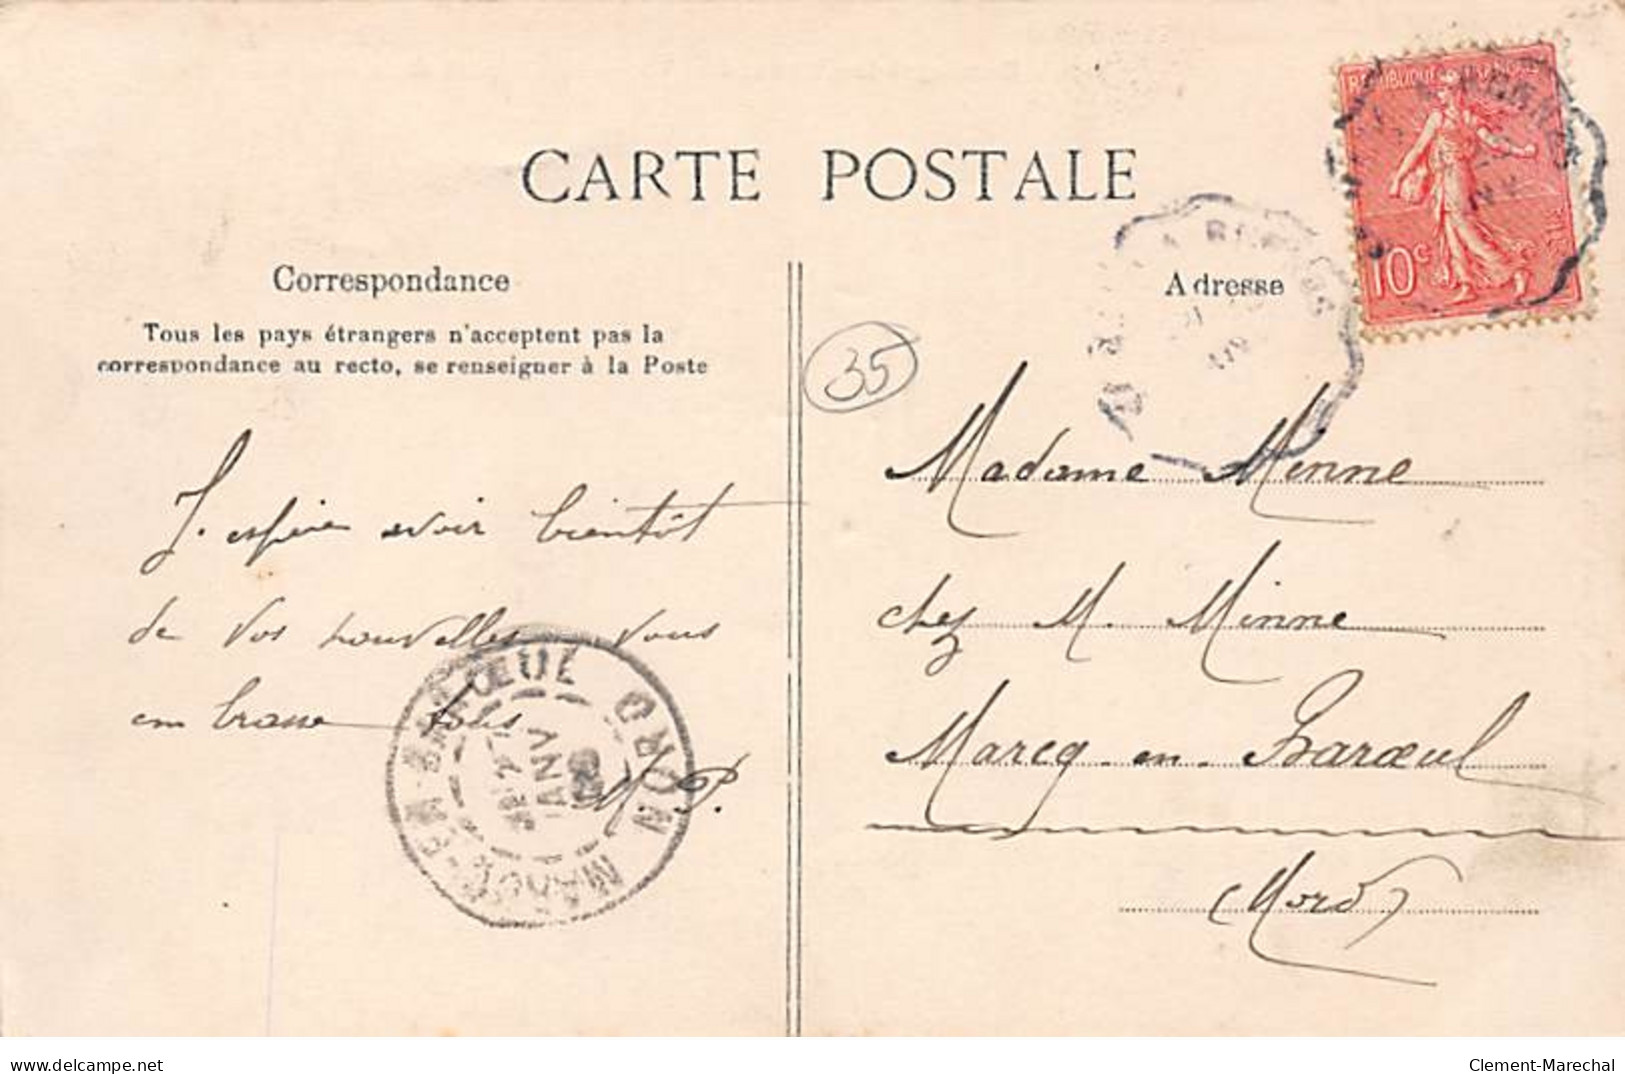 CARTE POSTALE
Correspondance
Tous les pays étrangers n'acceptent pas la
correspondance au recto, se renseigner à la Poste
J. espère avoir bientôt
de vos nouvelles vous
em brasse tous
M. P.
MARCQ-EN-BARŒUL NORD
JANV
RÉPUBLIQUE FRANÇAISE
10c
A RENNES
Adresse
35
Madame Minne
chez M. Minne
Marcq-en-Barœul
(Nord)
delcampe.net
Clement-Marechal